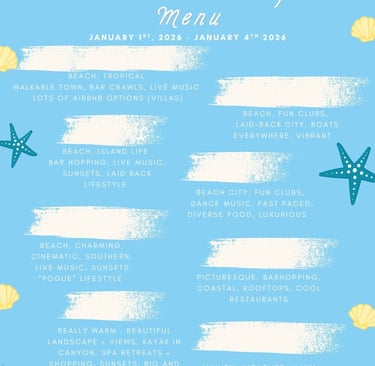 Menu
JANUARY 1ST, 2026 - JANUARY 4TH 2026
BEACH, TROPICAL
WALKABLE TOWN, BAR CRAWLS, LIVE MUSIC
LOTS OF AIRBNB OPTIONS (VILLAS)
BEACH, FUN CLUBS,
LAID-BACK CITY, BOATS
EVERYWHERE, VIBRANT
BEACH, ISLAND LIFE
BAR HOPPING, LIVE MUSIC,
SUNSETS, LAID BACK
LIFESTYLE
BEACH CITY, FUN CLUBS,
DANCE MUSIC, FAST PACED,
DIVERSE FOOD, LUXURIOUS
BEACH, CHARMING,
CINEMATIC, SOUTHERN,
LIVE MUSIC, SUNSETS,
"POGUE" LIFESTYLE
PICTURESQUE. BARHOPPING,
COASTAL, ROOFTOPS, COOL
RESTAURANTS
REALLY WARM . BEAUTIFUL
LANDSCAPE + VIEWS, KAYAK IN
CANYON, SPA RETREATS +
SHOPPING, SUNSETS, BIG AND